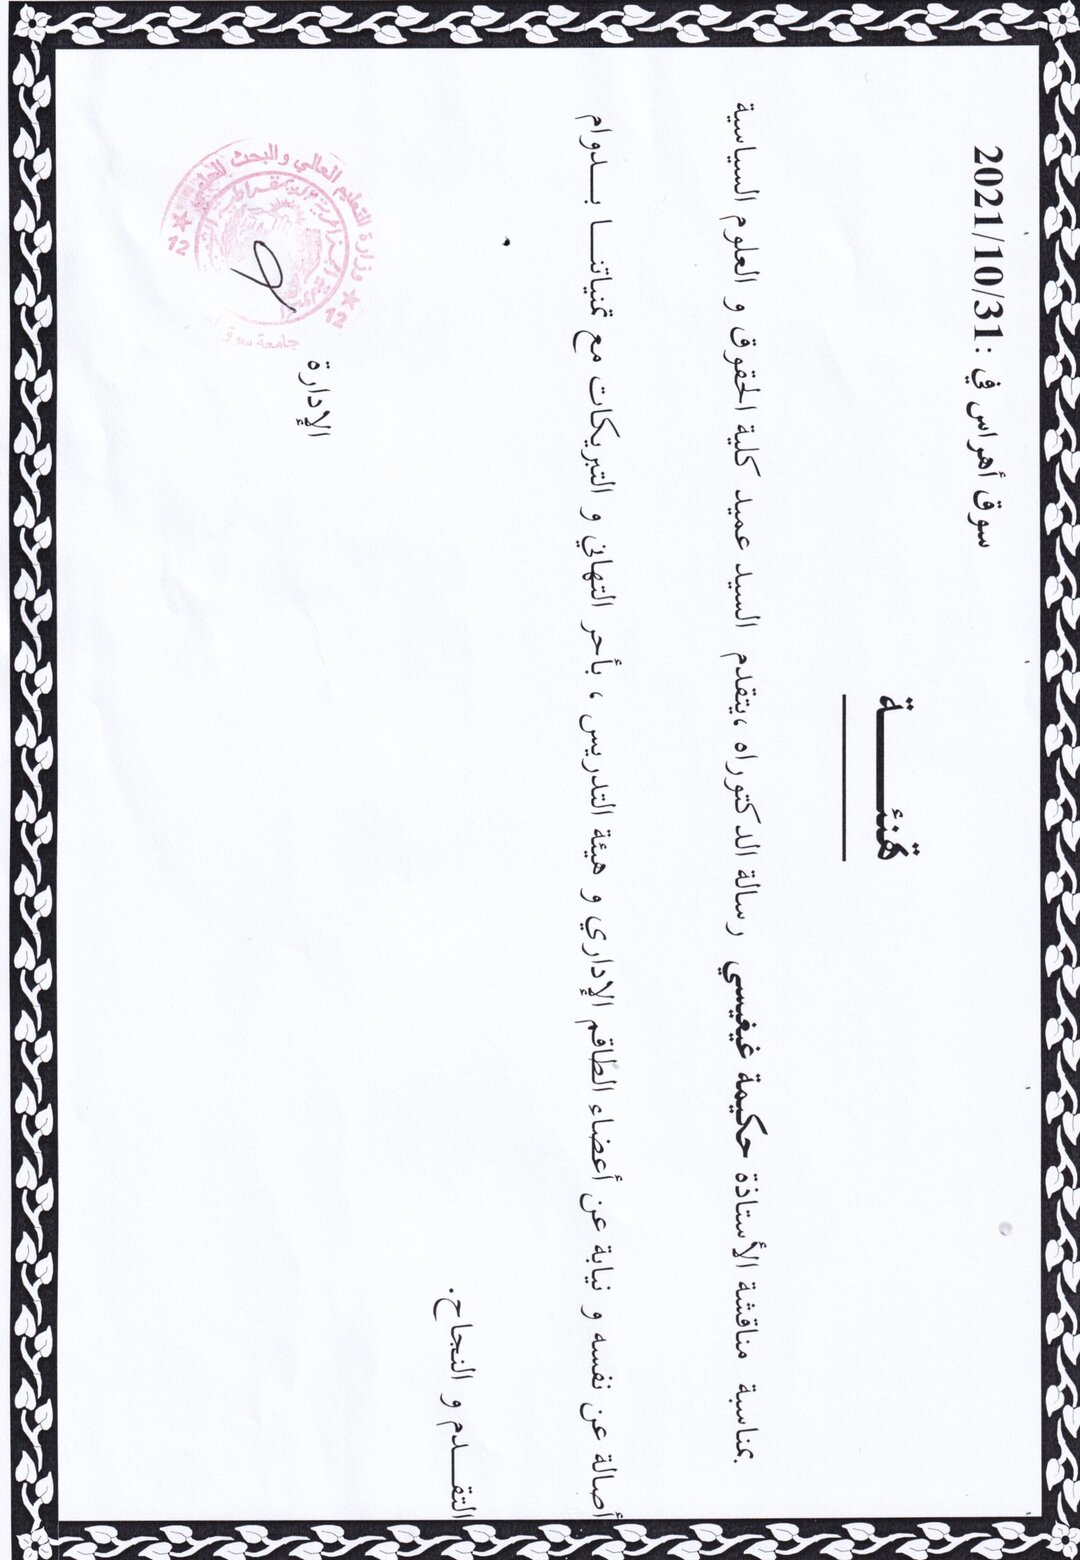 سوق أهراس في : 2021/10/31
تهنئـــــــة
بمناسبة مناقشة الأستاذة حكيمة غيغيسي رسالة الدكتوراه ،يتقدم السيد عميد كلية الحقوق و العلوم السياسية
أصالة عن نفسه و نيابة عن أعضاء الطاقم الإداري و هيئة التدريس ، بأحر التهاني و التبريكات مع تمنياتنـــا بـــدوام
التقـــدم و النجاح.
الإدارة
وزارة التعليم العالي والبحث العلمي
12
12
جامعة سوق